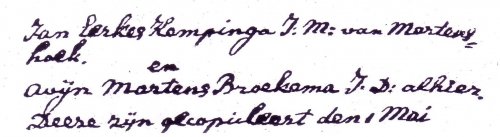 Jan Eerkes Kempinga J. M: van Martens=
hoek.
en
Avijn Martens Broekema J. D: alhier.
Deeze zijn gecopuleert den 1 Mai